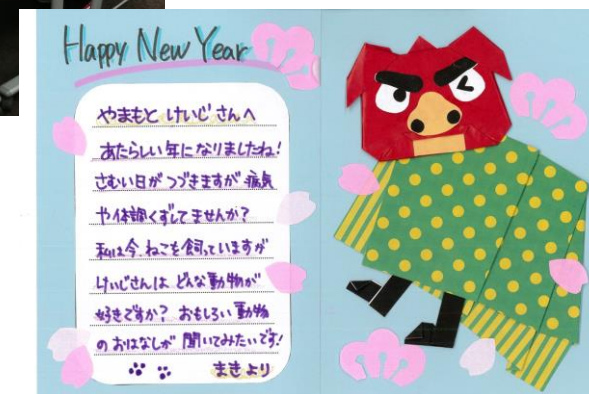 Happy New Year
やまもと けいじ さんへ
あたらしい年になりましたね!
さむい日が つづきますが 病気
や体調くずしてませんか?
私は今、ねこを飼っていますが
けいじさんは どんな動物が
好きですか? おもしろい 動物
のおはなしが 聞いてみたいです!
まきより